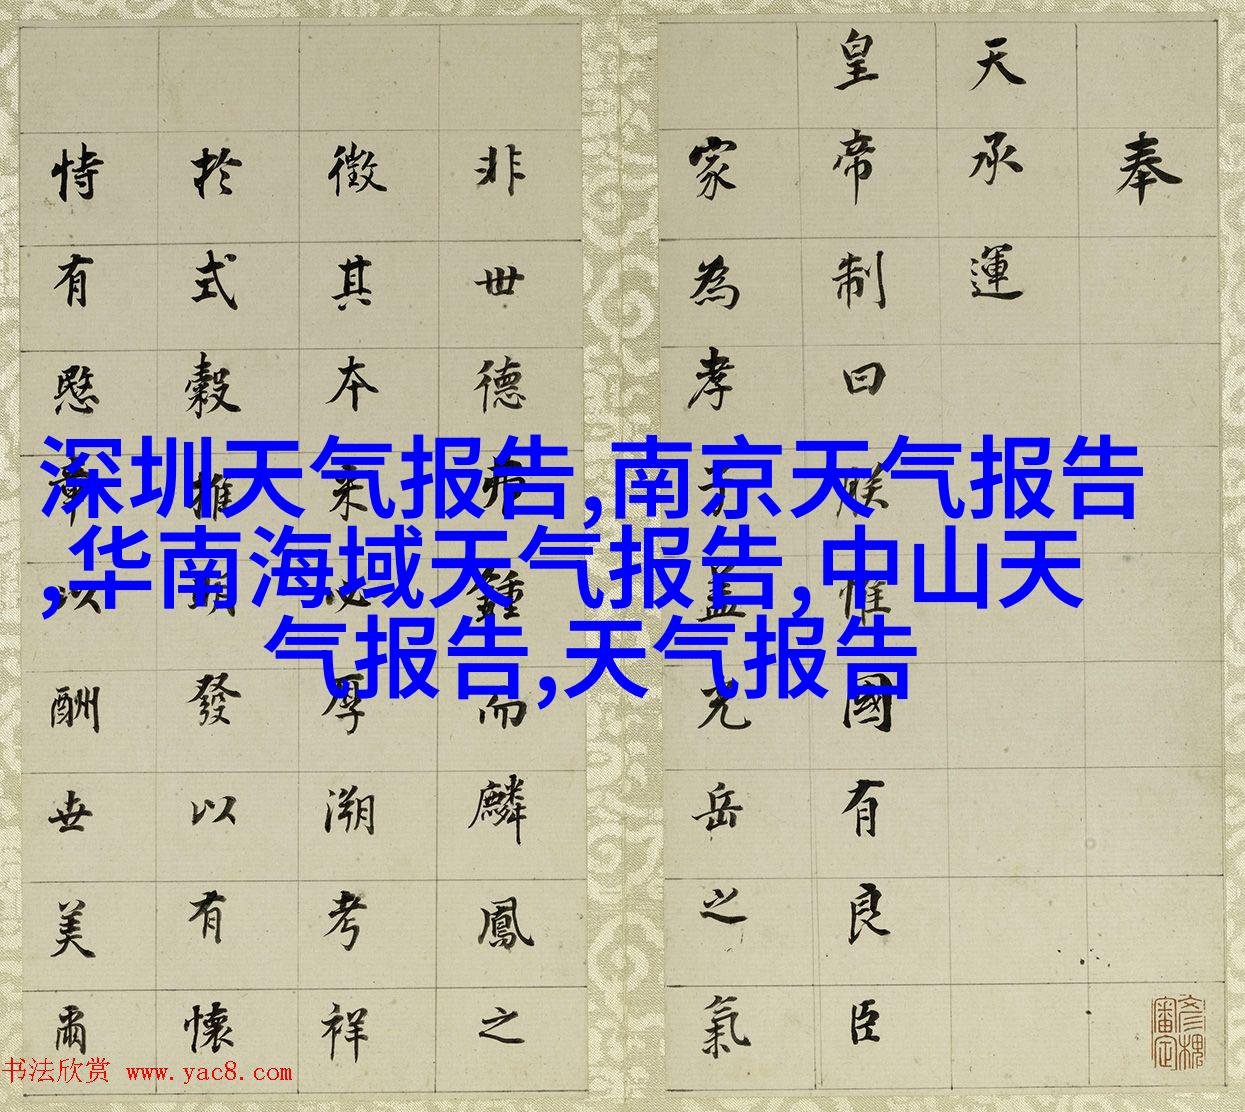 奉
天承運
皇帝制曰朕惟國有良臣
家為孝子蓋光岳之氣
非世德弗鍾而麟鳳之
徵其本必厚溯考祥
於式穀推明發以有懷
恃有愍章以酬世美爾
深圳天气报告,南京天气报告
,华南海域天气报告,中山天
气报告,天气报告
书法欣赏 www.yac8.com